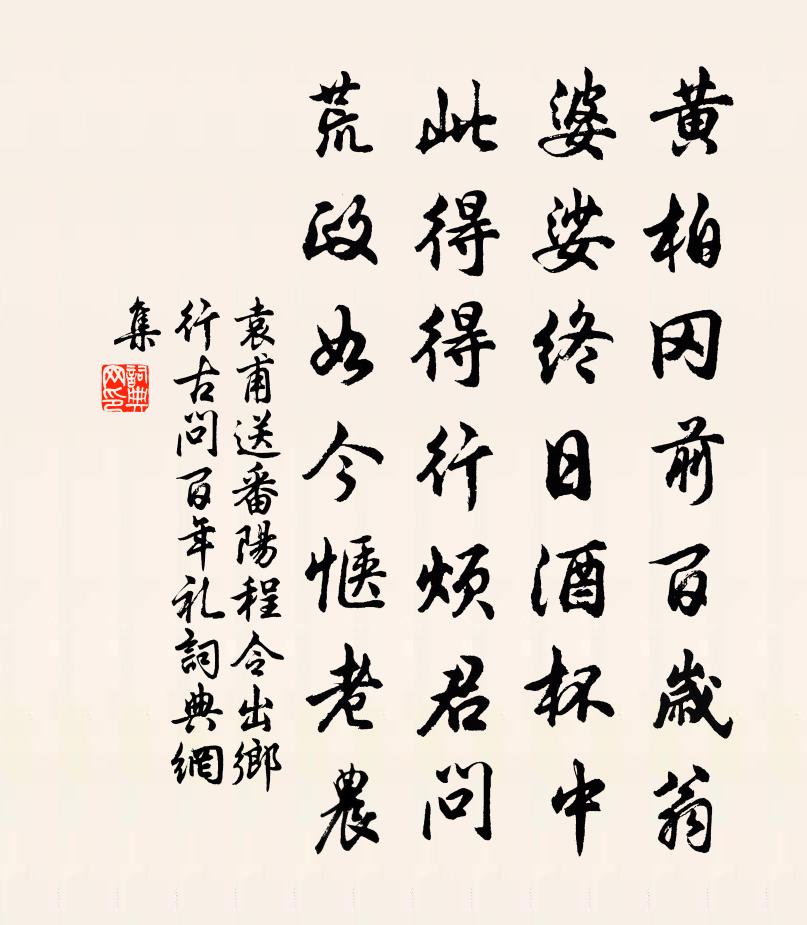 黃柏冈前百歲翁
婆娑終日酒杯中
此得得行煩君問
荒政如今愜老農
袁甫送番陽程令出鄉
行古問百年礼詞典網
集
詞典
网印